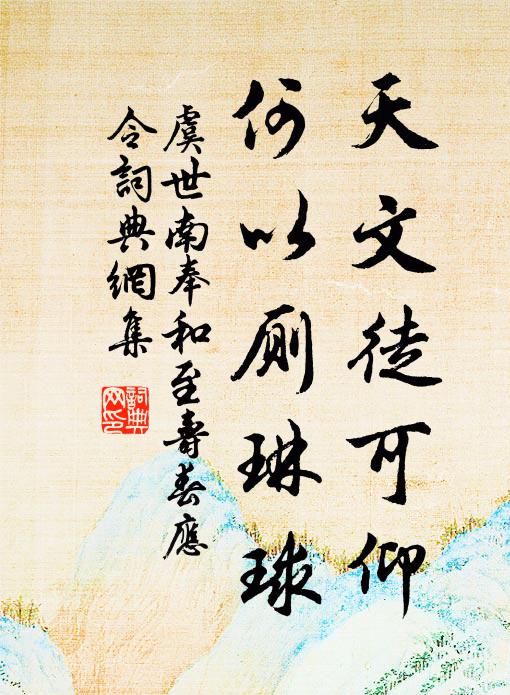 天文徒可仰
何以厠琳球
虞世南奉和至壽春應
令詞典網集
詞典
网印